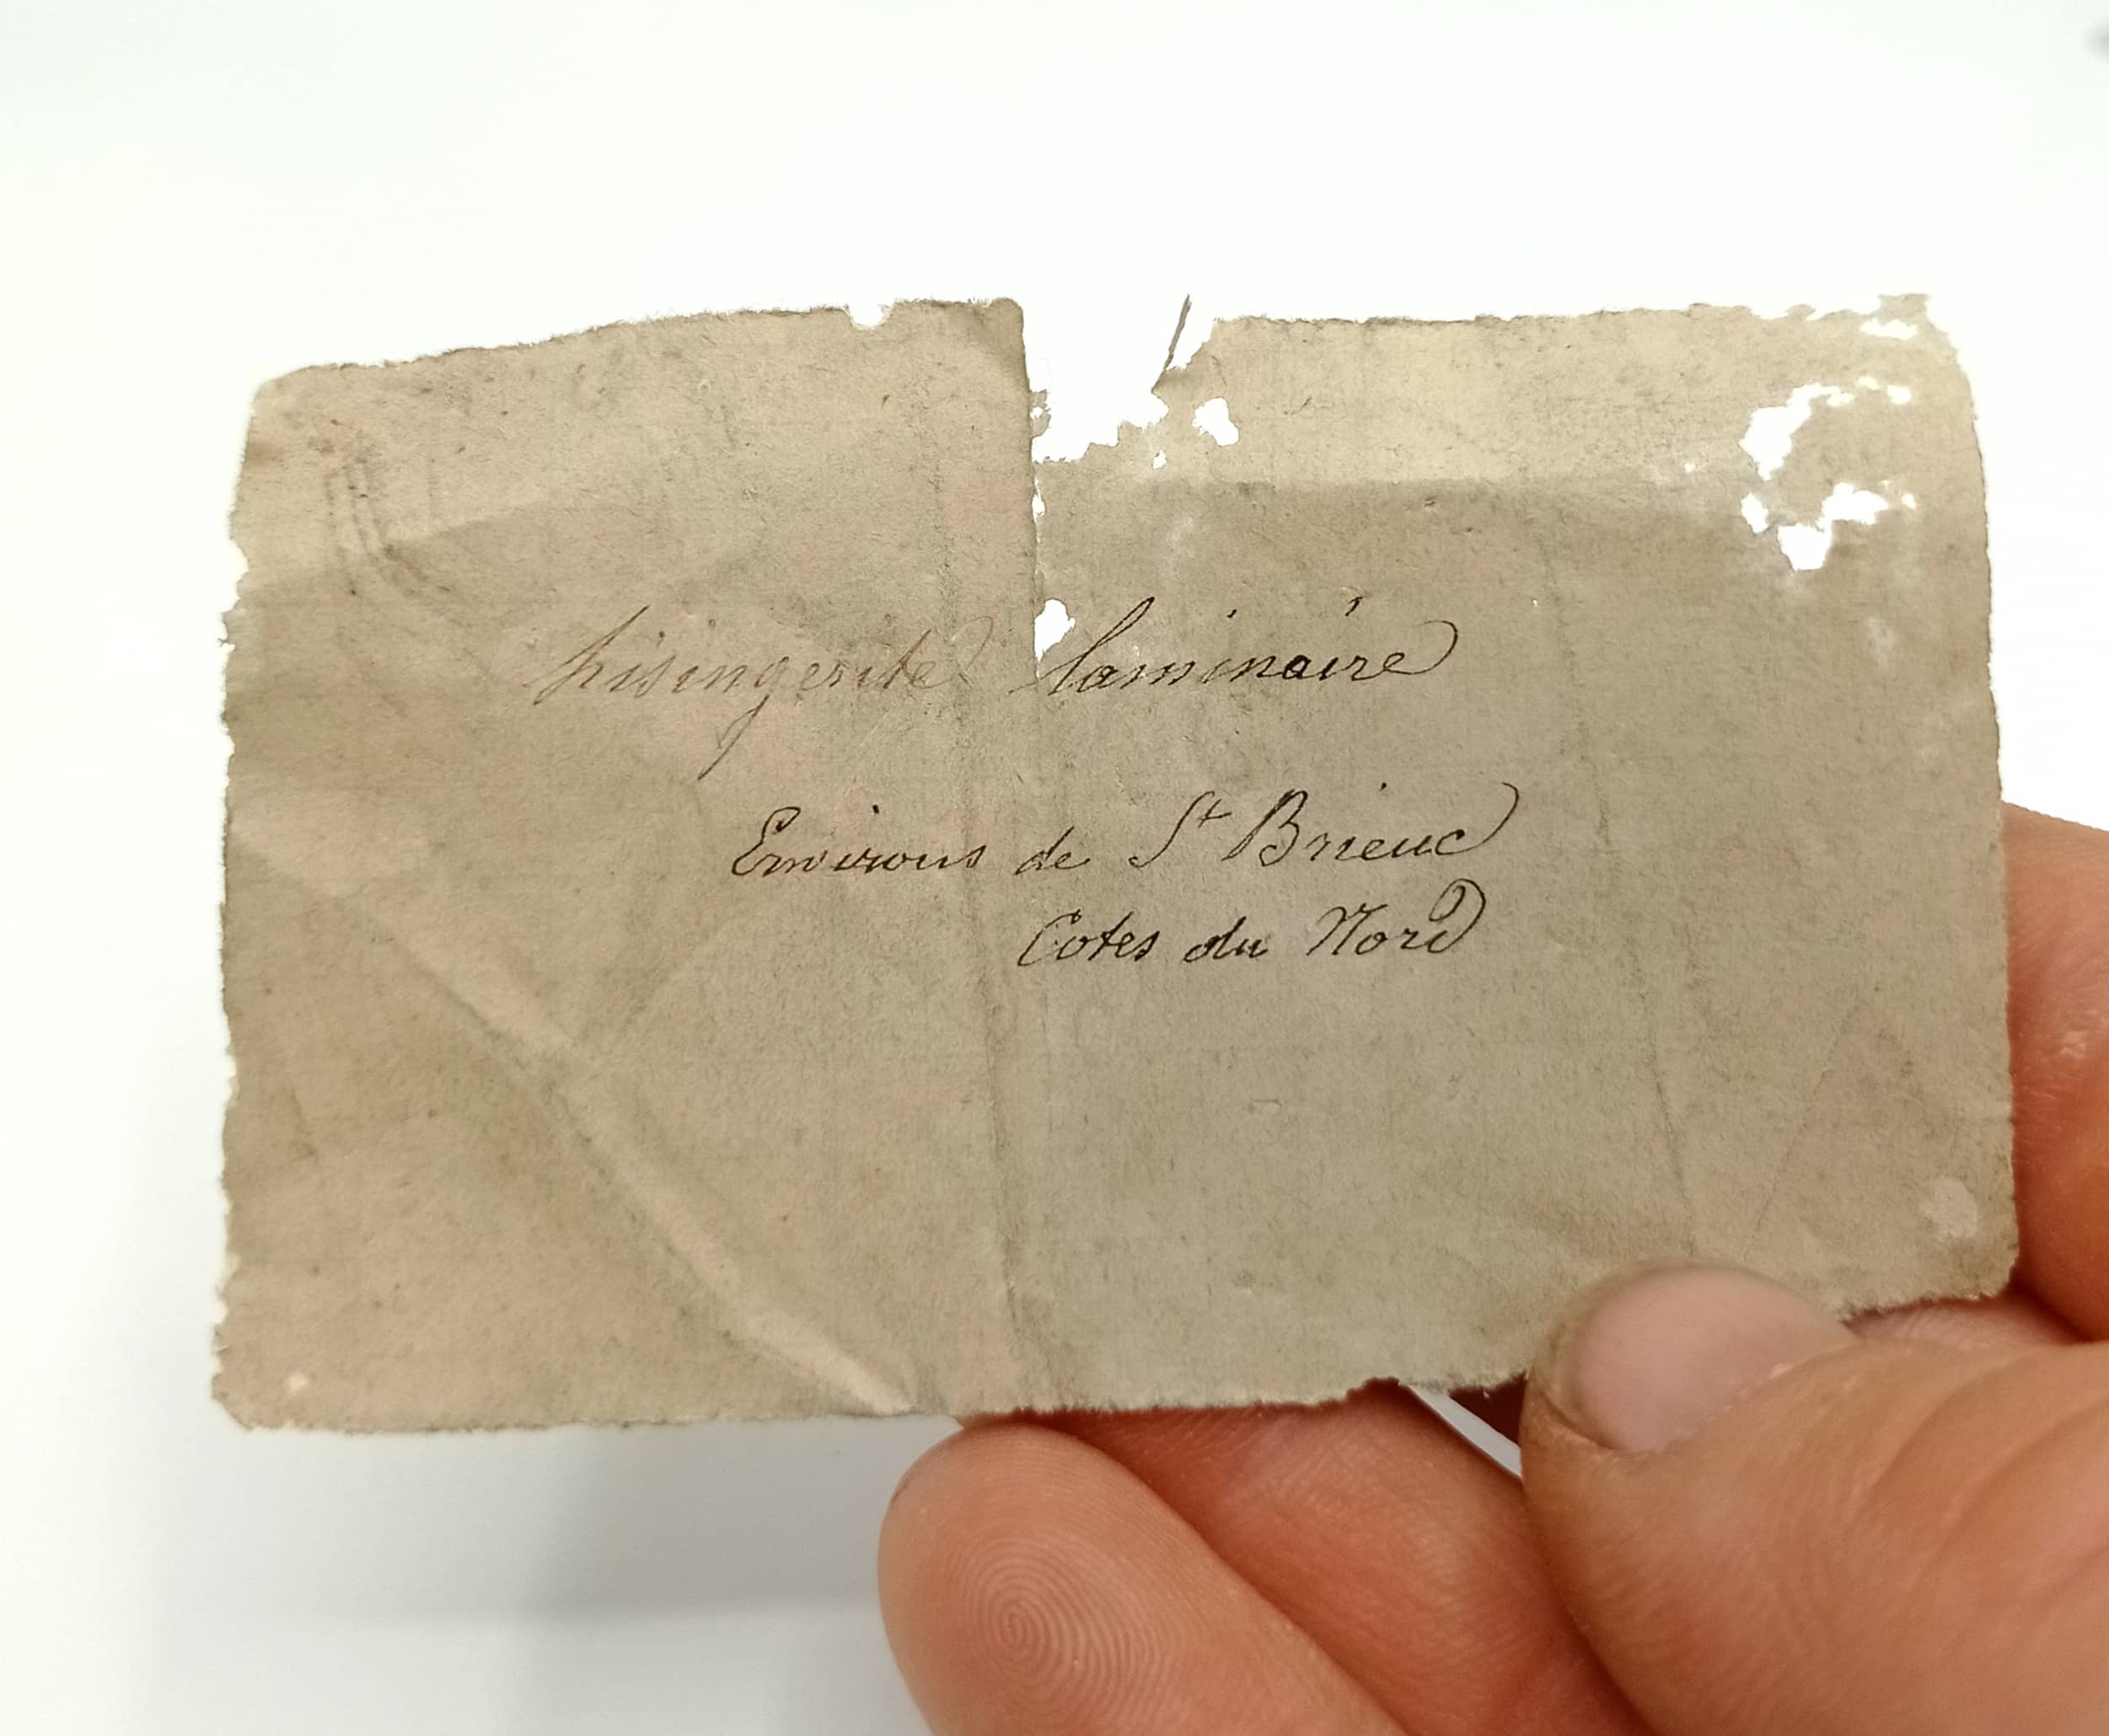 hisingerite laminaire
Environs de St Brieuc
Cotes du Nord